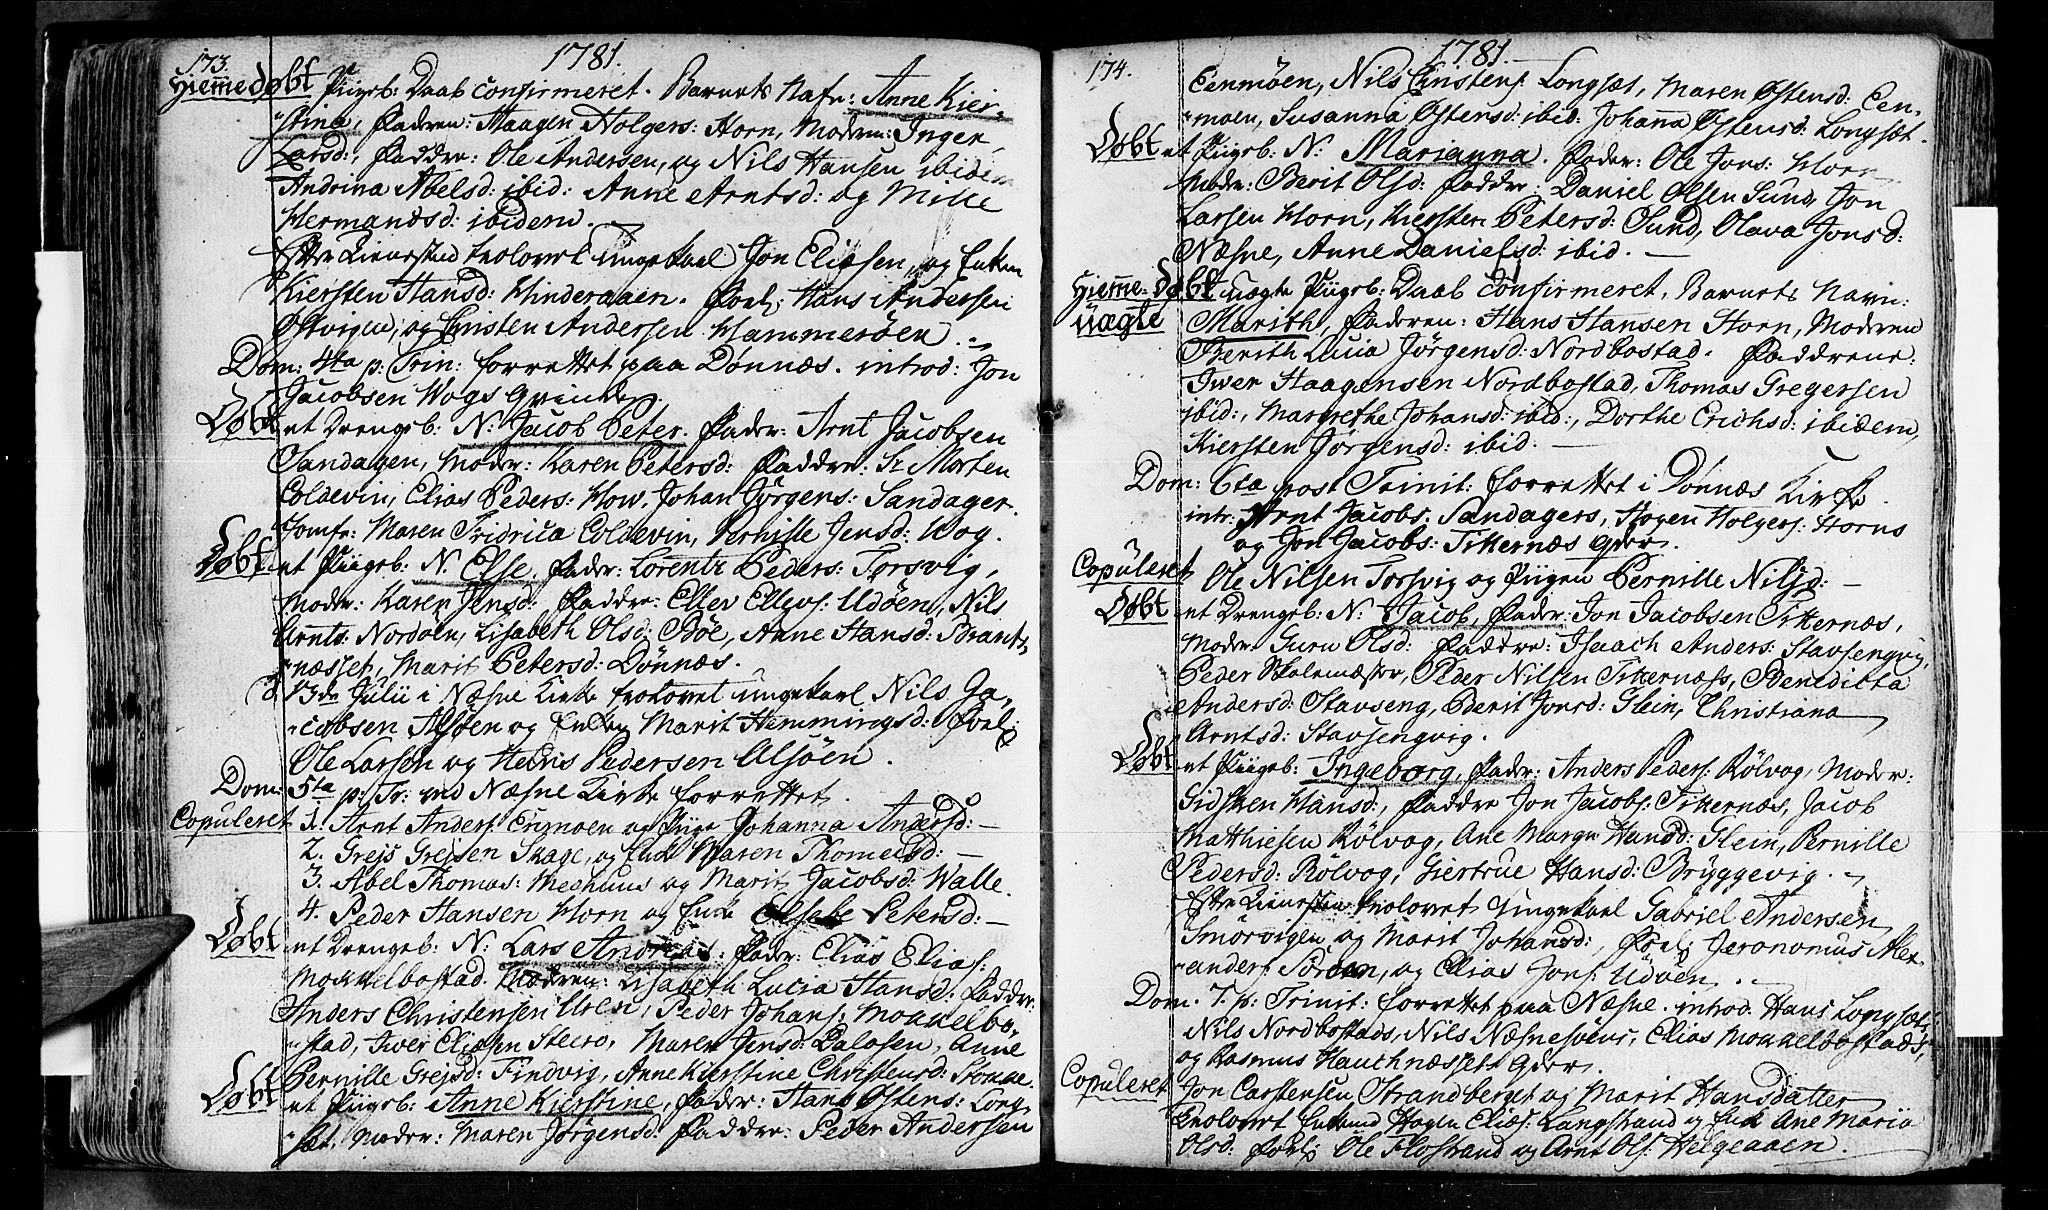 173.
1781.
Hiemedøbt Piigeb: Daab confirmeret. Barnets Nafn: Anne Kier-
stina, Faderen: Haagen Holgers: Horn, Moderen: Inger
Larsd:, Faddre: Ole Andersen, og Nils Hansen ibidem
Andrina Abelsd: ibid: Anne Arntsd: og Mille
Hermansd: ibidem.
Efter Tienesten trolovet ungekarl Jon Eliæsen, og Enken
Kiersten Hansd: Hinderaaen. Forl: Hans Andersen
Østvigen, og Christen Andersen Hammerøen.
Dom: 4ta p: Trin: forrettet paa Dønnæs. introd: Jon
Jacobsen Wogs Qvinde.
Døbt et Drengeb: N: Jacob Peter. Fader: Arnt Jacobsen
Sandagen, Moder: Karen Petersd: Faddre: Sr Morten
Coldevin, Elias Peders: How, Johan Jørgens: Sandager.
Jomfr: Maren Fridrica Coldevin, Pernille Jensd: Wog.
Døbt et Piigeb: N. Else, Fader: Lorentz Peders: Torsvig,
Moder: Karen Jensd:, Faddre: Eller Ellevs: Udøen, Nils
Arnts: Nordøen, Lisabeth Olsd: Bøe, Anne Hansd: Brant-
næsset, Marit Petersd: Dønnæs.
d 13de Julii i Næsne Kirke trolovet ungekarl Nils Ja-
cobsen Alsøen og Enken Marit Hemmingsd: Forl:
Ole Larsen og Hendris Pedersen Alsøen.
Dom: 5ta p: Tr: ved Næsne Kirke forrettet.
Copuleret 1. Arnt Anders: Enmoen og Pige Johanna Andersd:
2. Grejs Grejsen Skage, og Enke Maren Thomesd:
3. Abel Thomas: Mechuus og Marit Jacobsd: Walle.
4. Peder Hansen Horn og Enke Petersd:
Døbt et Drengeb: N: Lars Andreas. Fader: Elias Elias:
Mokkelbostad. Moderen: Lisabeth Lucia Hansd: Faddre:
Anders Christensen Peder Johans: Mokkelbo-
stad, Iwer Eliæsen Steiro, Maren Jensd: Dalosen, Anne
Pernille Grejsd: Findvig, Anne Kierstine Christensd:
Døbt et Piigeb: Anne Kierstine, Fader: Hans Østens: Long-
sæt. Moder: Maren Jørgensd: Faddre: Peder Andersen
174.
1781.
Eenmoen, Nils Christens: Longsæt, Maren Østensd: Een-
moen, Susanna Østensd: ibid: Johana Østensd: Longsæt.
Døbt et Piigeb: N: Marianna. Fader: Ole Jons: Horn
Moder: Berit Olsd: Faddre: Daniel Olsen Sund, Jon
Larsen Horn, Kiersten Petersd: Sund, Olava Jonsd:
Næsne, Anne Danielsd: ibid.
Hieme-døbt uægte Piigeb: Daab confirmeret, Barnets Navn:
uægte Marith, Faderen: Hans Hansen Horn, Moderen
Berith Lucia Jørgensd: Nordbostad. Faddrene:
Iwer Haagensen Nordbostad, Thomas Gregersen
ibid:, Margrethe Johansd: ibid:, Dorthe Erichsd: ibidem,
Kiersten Jørgensd: ibid.
Dom: 6ta post Trinit: forrettet i Dønnæs Kirke.
intr: Arnt Jacobs: Sandagers, Hagen Holgers: Horns
og Jon Jacobs: Tikernæs Qder.
Copuleret Ole Nilsen Torsvig og Piigen Pernille Nilsd:
Døbt et Drengeb: N: Jacob, Fader: Jon Jacobsen Tikernæs,
Moder Guru Olsd: Faddre: Isaach Anders: Stavsengvig,
Peder Skolemæster, Peder Nilsen Tikernæss, Benedicta
Andersd: Stavseng, Berit Jonsd: Glein, Christiana
Arntsd: Stavsengvig.
Døbt et Piigeb: Ingeborg, Fader: Anders Peders: Rølvog, Moder:
Sidsken Hansd:, Faddre Jon Jacobs: Tikernæs, Jacob
Matthiesen Rølvog, Ane Margr: Hansd: Glein, Pernille
Pedersd: Rølvog, Giertrue Hansd: Bryggevig.
Efter Tienesten trolovet Ungekarl Gabriel Andersen
Smørvigen og Marit Johansd:, Forl: Jeronomus Alex-
anders: og Elias Jons: Udøen.
Dom. 7. p: Trinit: forrettet paa Næsne. introd. Hans Longsæts
Nils Nordbostads, Nils Næsnesvens, Elias Mokkelbostads,
og Rasmus Hauchnæssets Qder.
Copuleret Jon Carstensen Strandberget og Marit Hansdatter
Trolovet Enkemd Hagen Elias: Langstrand og Enke Ane Maria
Olsd: Forl: Ole Flostrand og Arnt Ols: Helgeaaen.